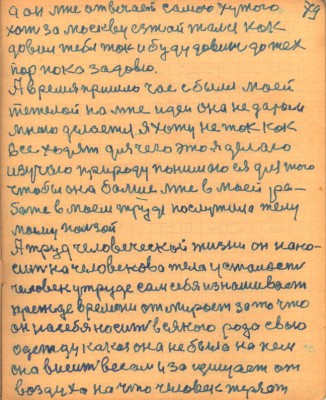 79
а он мне отвечает самого худого
хоть за москву езжай жался как
давил тебя так и буду давить до тех
пор пока задавлю.
А время пришло час с были моей
тетелой на мне идеи она не даром
много делается я хожу не так как
все ходят для чего это я делаю
изучаю природу понимаю ея для того
чтобы она больше мне в моей ра-
боте в моем труде послужила тему
моему пользой
А труд человеческой жизни он нано-
сит на человеково тела усталости
человек у труде сам себя изнашивает
прежде времени отмирает за то что
он на себя носит всякого рода свою
одежду какая она не была на нем
она висит весом и защищает от
воздуха на что человек теряет